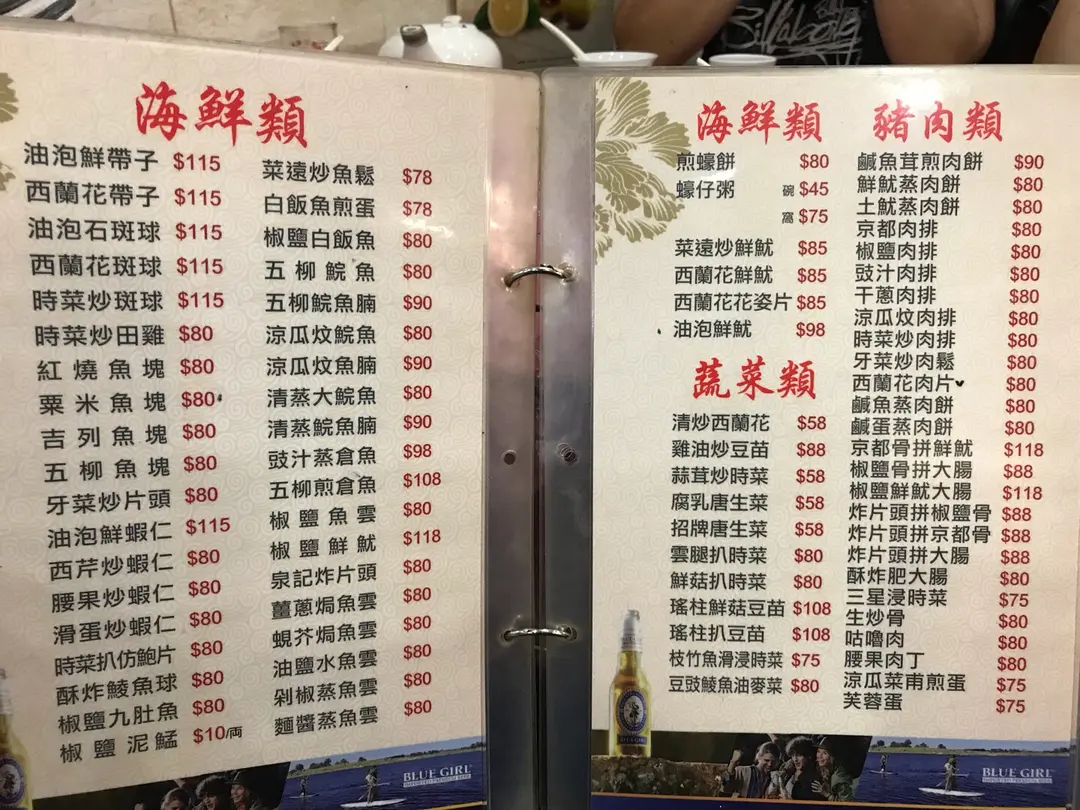 海鮮類
油泡鮮帶子 $115
西蘭花帶子 $115
油泡石斑球 $115
西蘭花斑球 $115
時菜炒斑球 $115
時菜炒田雞 $80
紅燒魚塊 $80
粟米魚塊 $80
吉列魚塊 $80
五柳魚塊 $80
牙菜炒片頭 $80
油泡鮮蝦仁 $115
西芹炒蝦仁 $80
腰果炒蝦仁 $80
滑蛋炒蝦仁 $80
時菜扒仿鮑片 $80
酥炸鯪魚球 $80
椒鹽九肚魚 $80
椒鹽泥鯭 $10/両
菜遠炒魚鬆 $78
白飯魚煎蛋 $78
椒鹽白飯魚 $80
五柳鯇魚 $80
五柳鯇魚腩 $90
涼瓜炆鯇魚 $80
涼瓜炆魚腩 $90
清蒸大鯇魚 $80
清蒸鯇魚腩 $90
豉汁蒸倉魚 $98
五柳煎倉魚 $108
椒鹽魚雲 $80
椒鹽鮮魷 $118
泉記炸片頭 $80
薑蔥焗魚雲 $80
蜆芥焗魚雲 $80
油鹽水魚雲 $80
剁椒蒸魚雲 $80
麵醬蒸魚雲 $80
BLUE GIRL
海鮮類
煎蠔餅 $80
蠔仔粥 碗 $45
窩 $75
菜遠炒鮮魷 $85
西蘭花鮮魷 $85
西蘭花花姿片 $85
油泡鮮魷 $98
蔬菜類
清炒西蘭花 $58
雞油炒豆苗 $88
蒜茸炒時菜 $58
腐乳唐生菜 $58
招牌唐生菜 $58
雲腿扒時菜 $80
鮮菇扒時菜 $80
瑤柱鮮菇豆苗 $108
瑤柱扒豆苗 $108
枝竹魚滑浸時菜 $75
豆豉鯪魚油麥菜 $80
豬肉類
鹹魚茸煎肉餅 $90
鮮魷蒸肉餅 $80
土魷蒸肉餅 $80
京都肉排 $80
椒鹽肉排 $80
豉汁肉排 $80
干蔥肉排 $80
涼瓜炆肉排 $80
時菜炒肉排 $80
牙菜炒肉鬆 $80
西蘭花肉片 $80
鹹魚蒸肉餅 $80
鹹蛋蒸肉餅 $80
京都骨拼鮮魷 $118
椒鹽骨拼大腸 $88
椒鹽鮮魷大腸 $118
炸片頭拼椒鹽骨 $88
炸片頭拼京都骨 $88
炸片頭拼大腸 $88
酥炸肥大腸 $80
三星浸時菜 $75
生炒骨 $80
咕嚕肉 $80
腰果肉丁 $80
涼瓜菜甫煎蛋 $75
芙蓉蛋 $75
BLUE GIRL
BLUE GIRL
Billabong